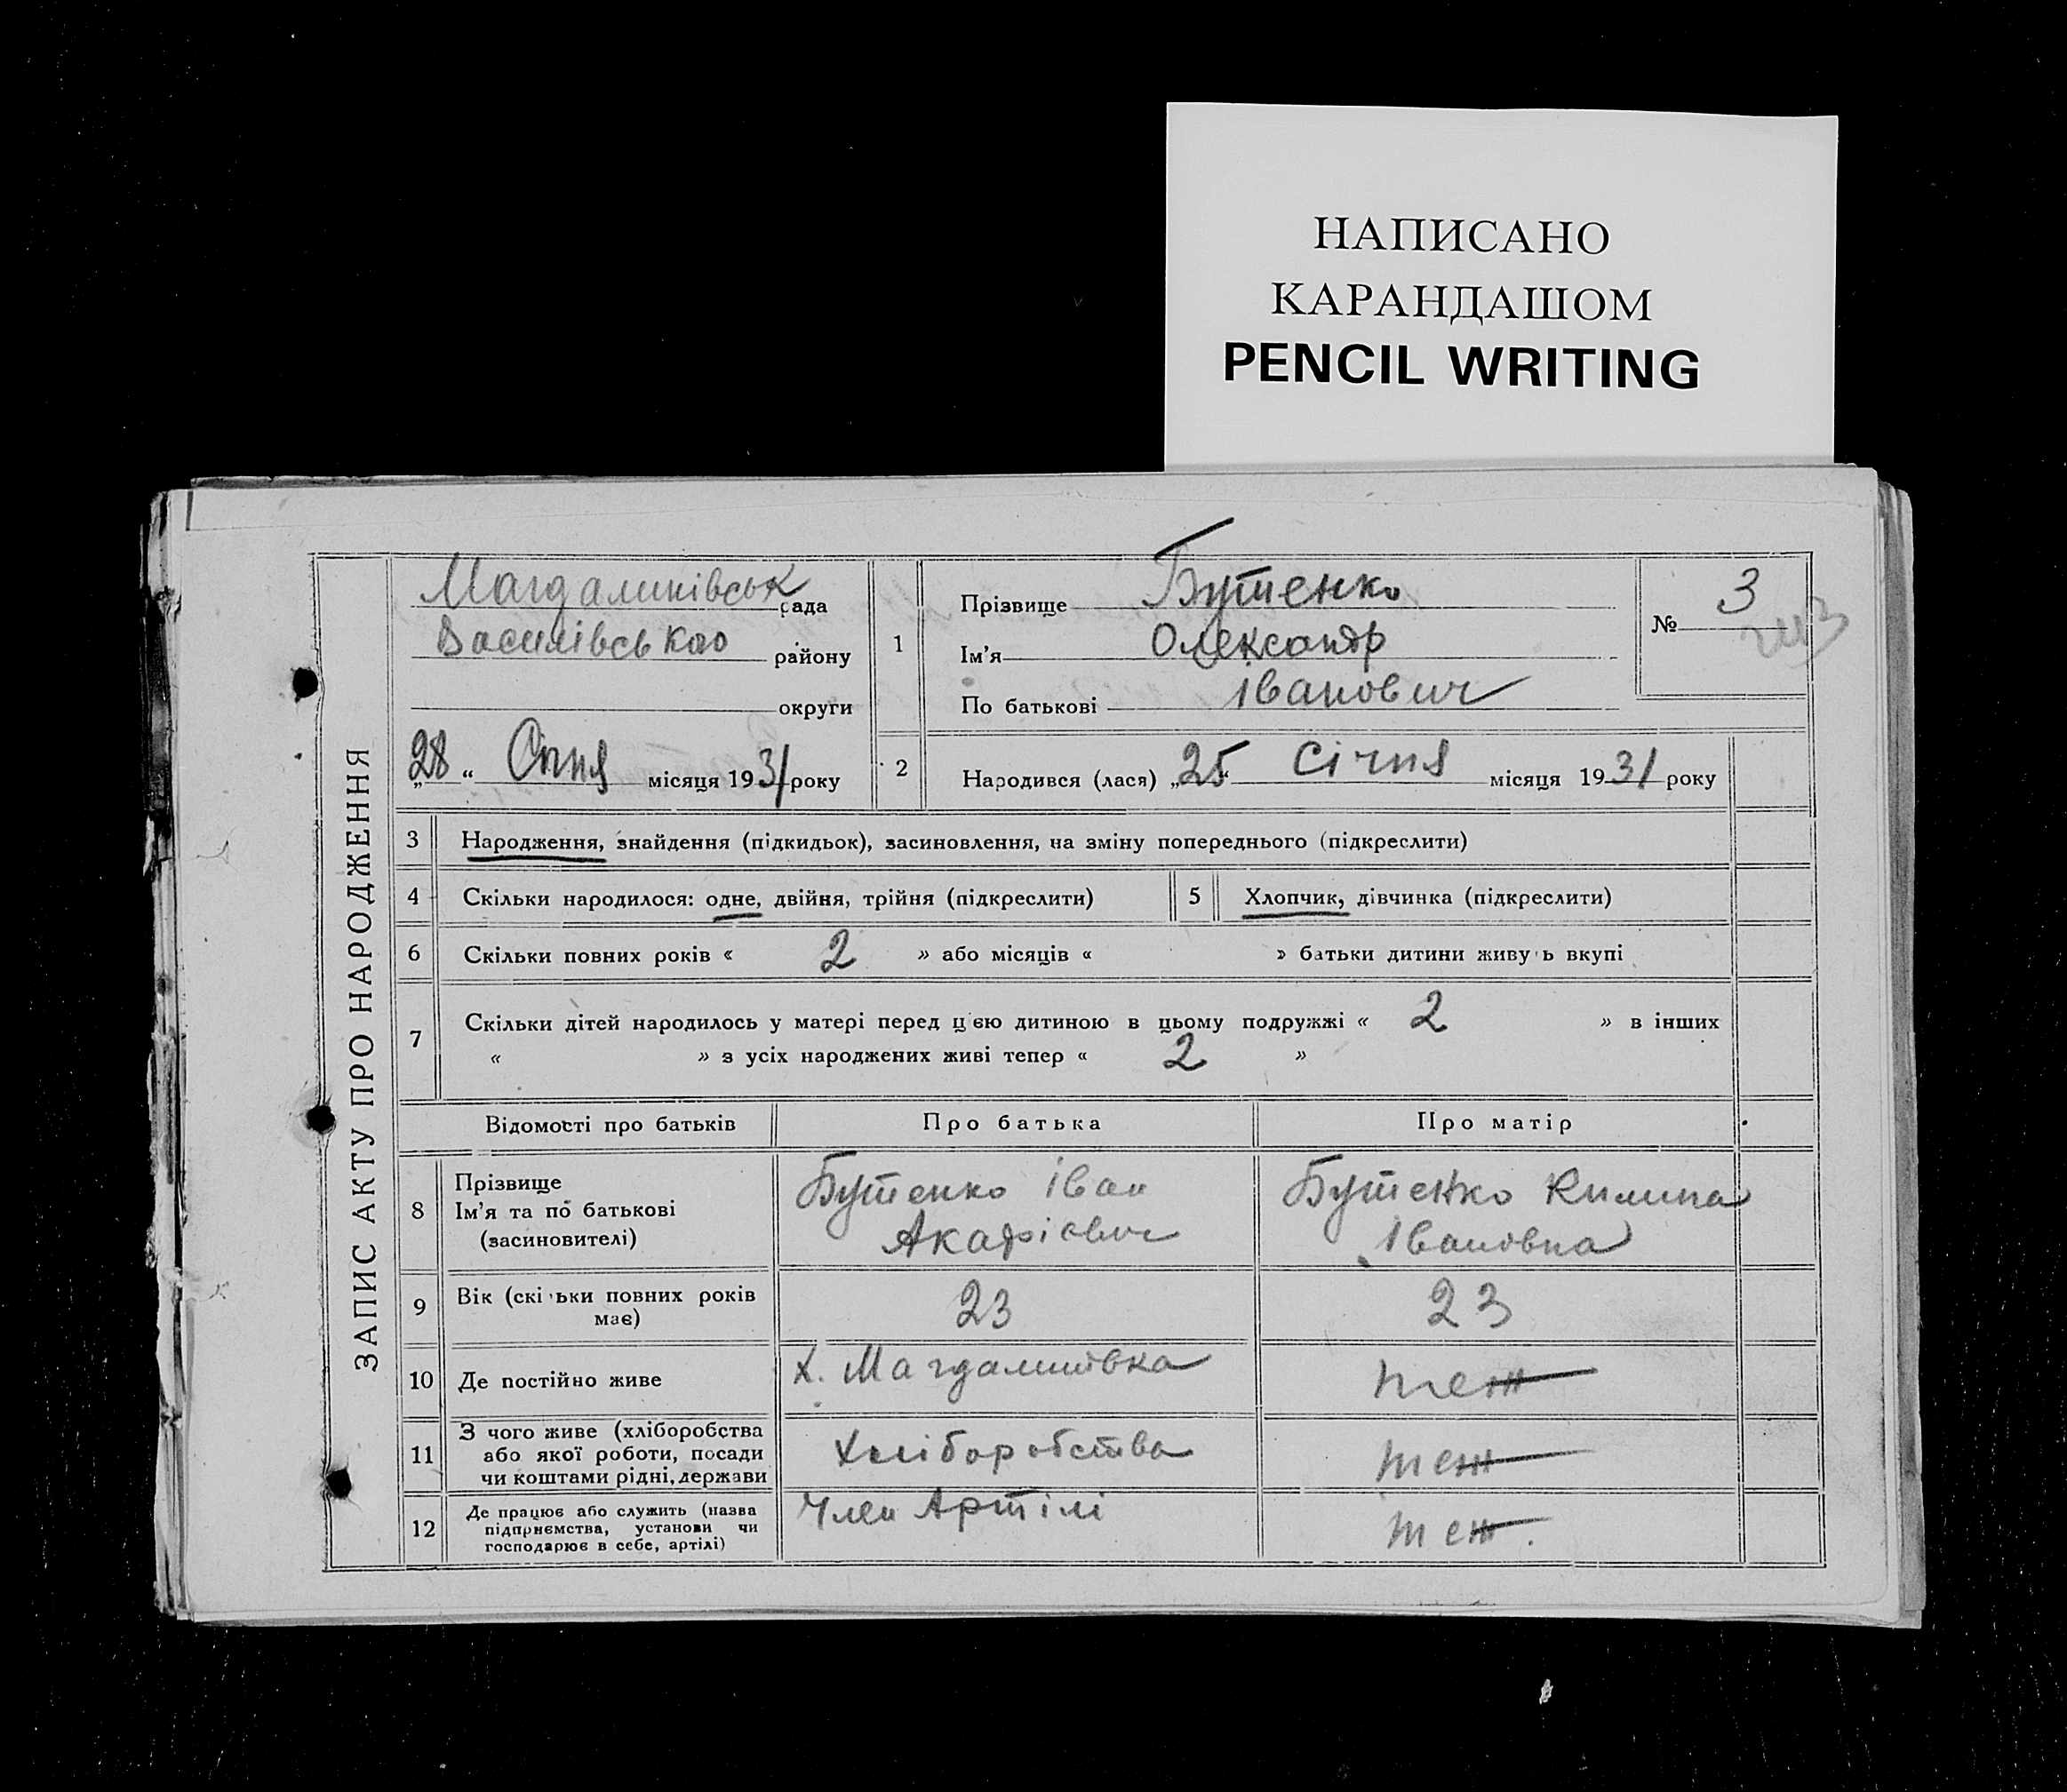 НАПИСАНО
КАРАНДАШОМ
PENCIL WRITING
ЗАПИС АКТУ ПРО НАРОДЖЕННЯ
Магдалинівськ рада
Василівського району
округи
„28“ Січня місяця 1931 року
1
Прізвище Бутенко
Ім'я Олександр
По батькові Іванович
№ 3
2 Народився (лася) „25“ Січня місяця 1931 року
3 Народження, знайдення (підкидьок), засиновлення, на зміну попереднього (підкреслити)
4 Скільки народилося: одне, двійня, трійня (підкреслити) 5 Хлопчик, дівчинка (підкреслити)
6 Скільки повних років « 2 » або місяців « » батьки дитини живуть вкупі
7 Скільки дітей народилось у матері перед цією дитиною в цьому подружжі « 2 » в інших
« » з усіх народжених живі тепер « 2 »
Відомості про батьків Про батька Про матір
8 Прізвище
Ім'я та по батькові
(засиновителі)
Бутенко Іван
Бутенко
Івановна
9 Вік (скільки повних років
має)
23
23
10 Де постійно живе
Х. Магдалинівка
теж
11 З чого живе (хліборобства
або якої роботи, посади
чи коштами рідні, держави
Хліборобства
теж
12 Де працює або служить (назва
підприємства, установи чи
господарює в себе, артілі)
Член Артілі
теж.